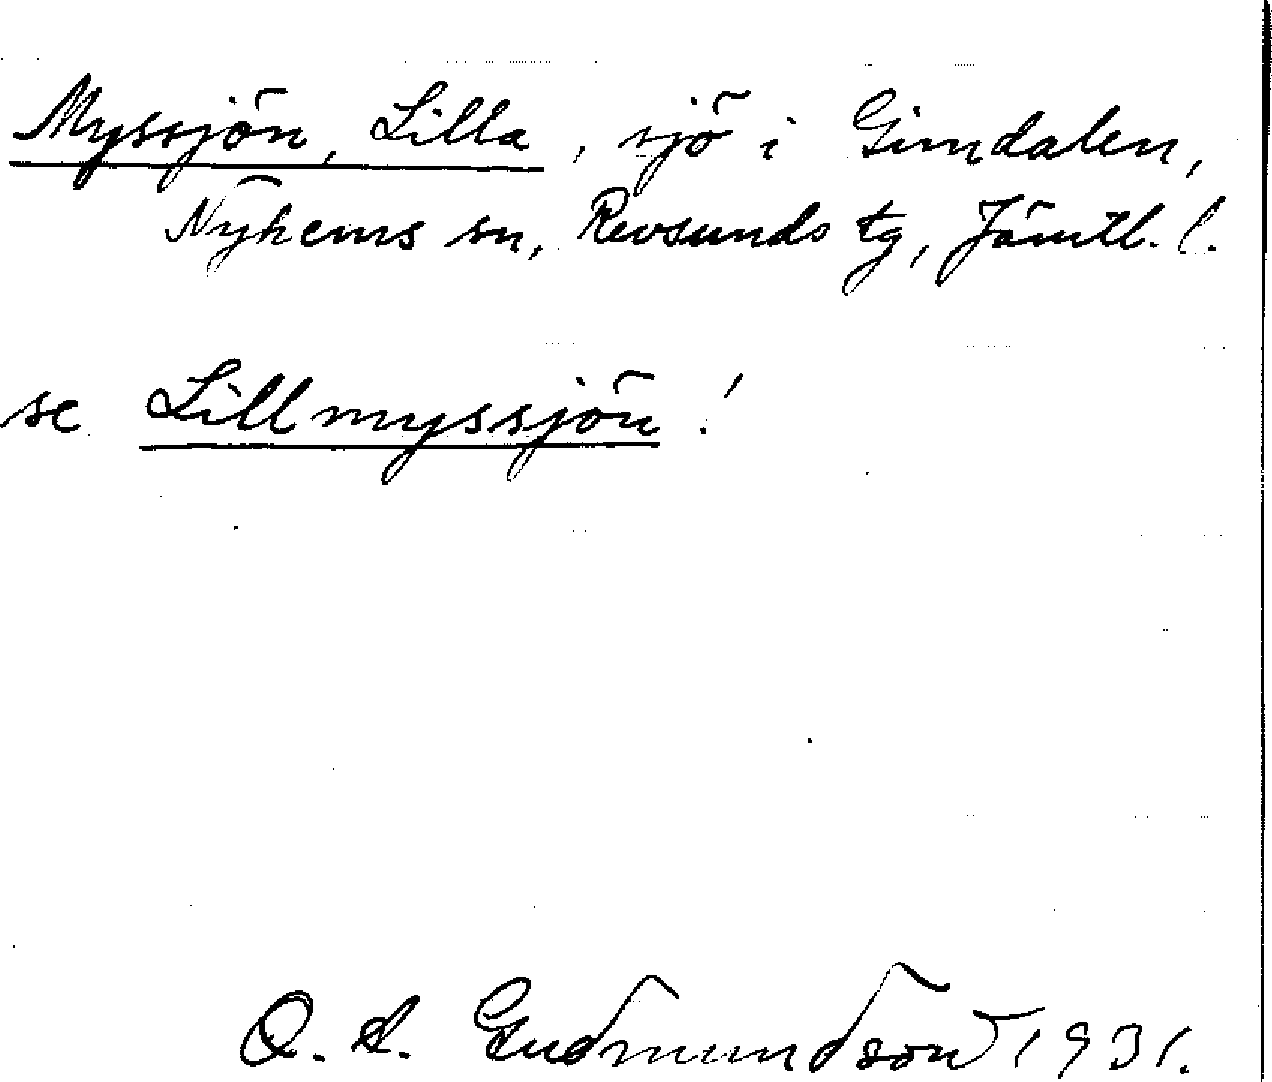 Myssjön, Lilla, sjö i Gimdalen,
Nyhems sn, Revsunds tg, Jämtl. l.
se Lillmyssjön!
O. A. Gudmundson 1931.